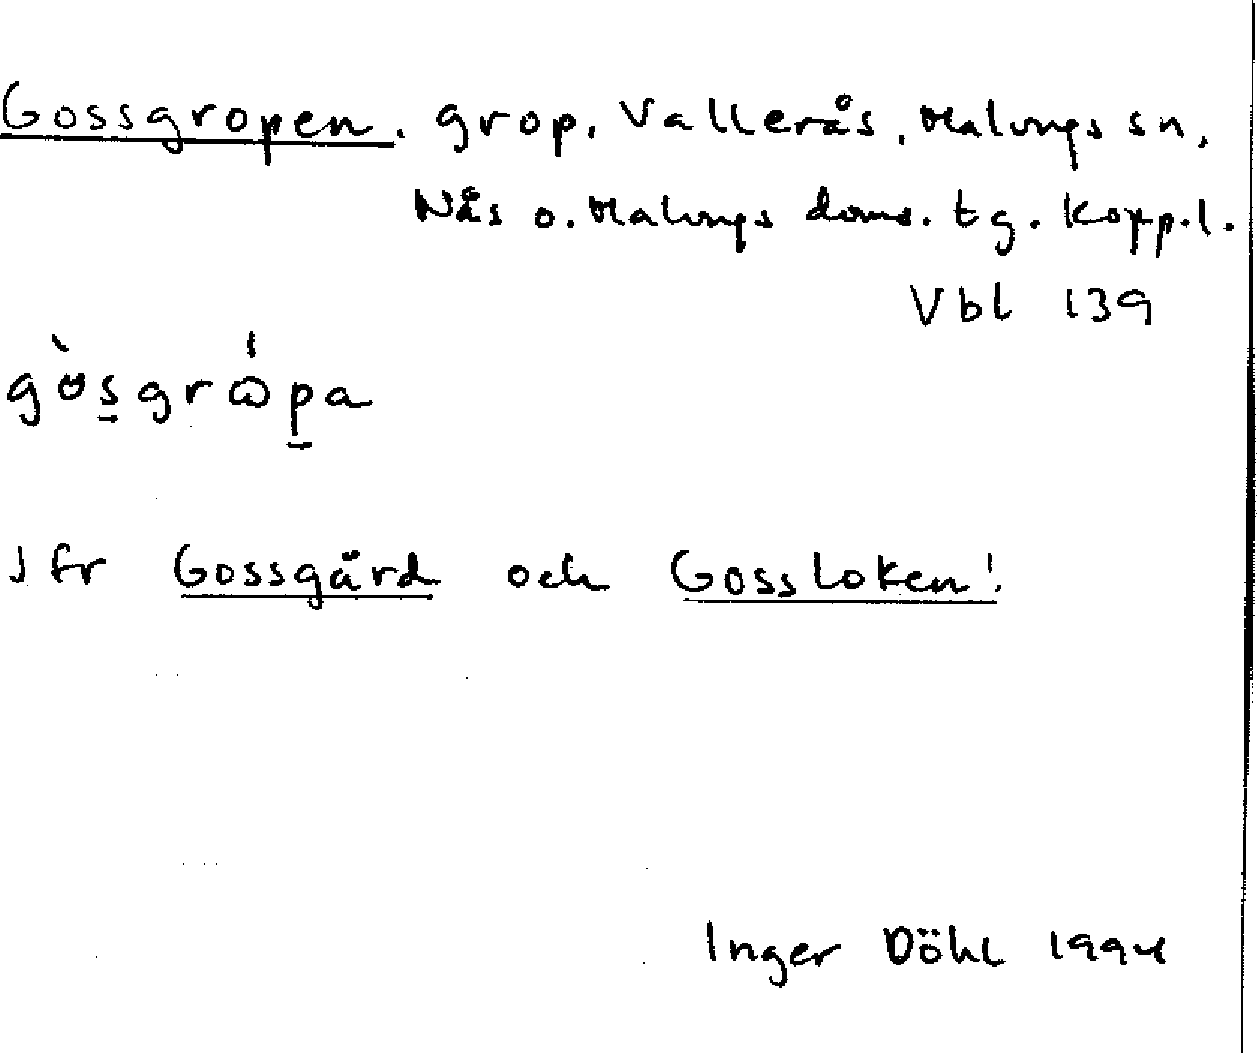 Gossgropen. grop. Vallerås, Malungs sn.
Nås o. Malungs doms. tg. Kopp.l.
Vbl 139
gòsgrɷ́pa
Jfr Gossgärd och Gossloken!
Inger Döhl 1994